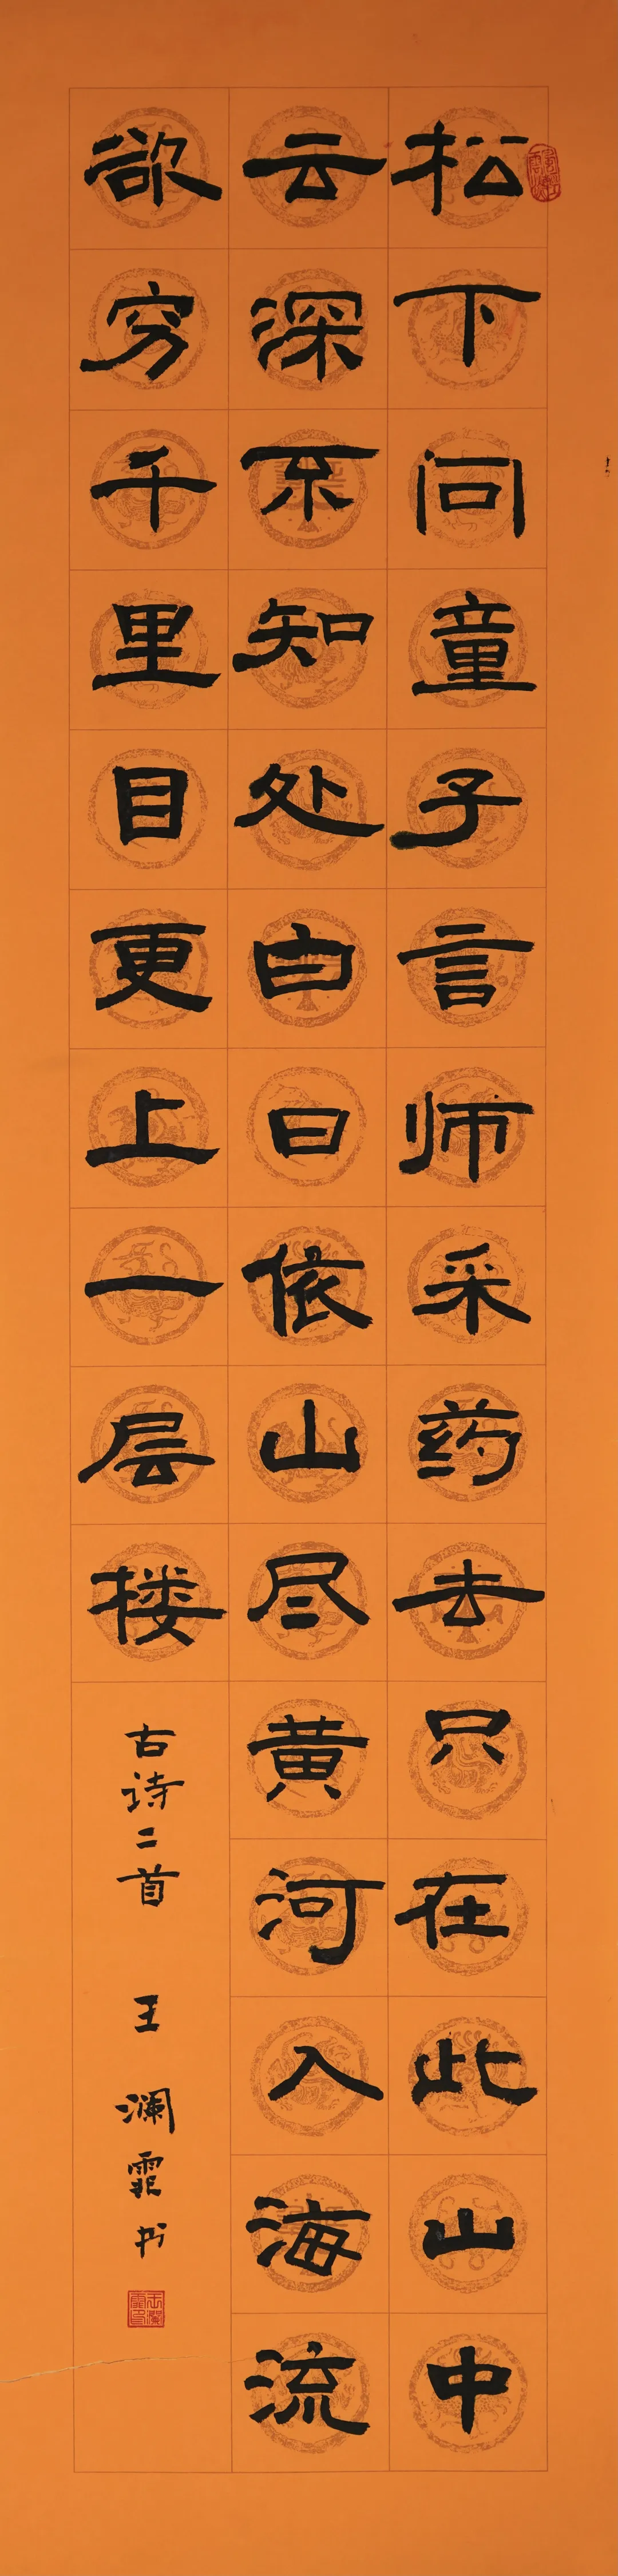 松下问童子言师采药去只在此山中
云深不知处白日依山尽黄河入海流
欲穷千里目更上一层楼
古诗二首 王澜霏书